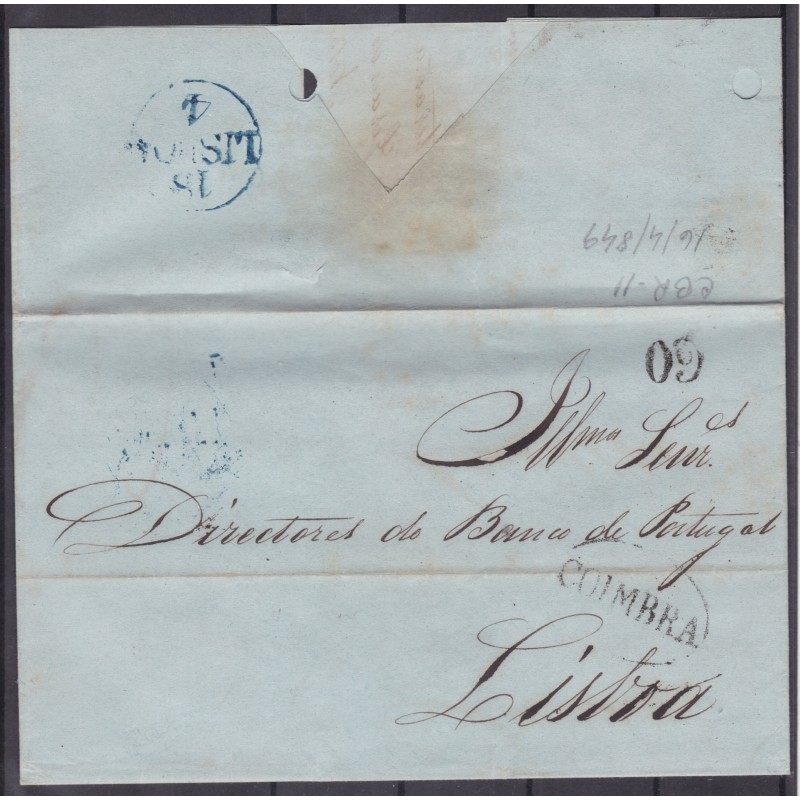 18
LISBOA
4
CBR-11
16/4/849
60
Illmos Senrs.
Directores do Banco de Portugal
COIMBRA
Lisboa